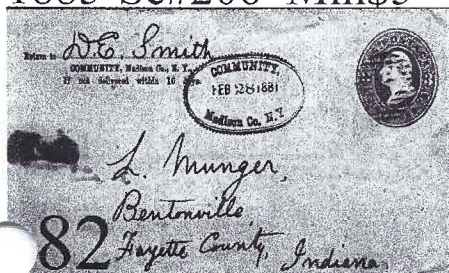 Return to D.C. Smith
COMMUNITY, Madison Co., N. Y.
If not delivered within 10
COMMUNITY,
FEB 28 1881
Madison Co. N.Y
L. Munger,
Bentonville
Fayette County, Indiana
82